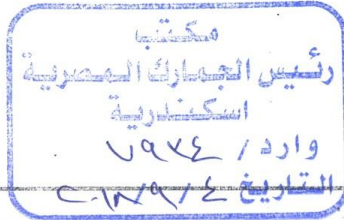 مكتب
رئيس الجمارك المصرية
اسكندرية
وارد / ٧٩٣٤
التاريخ ٤ / ٩ / ٢٠١٨